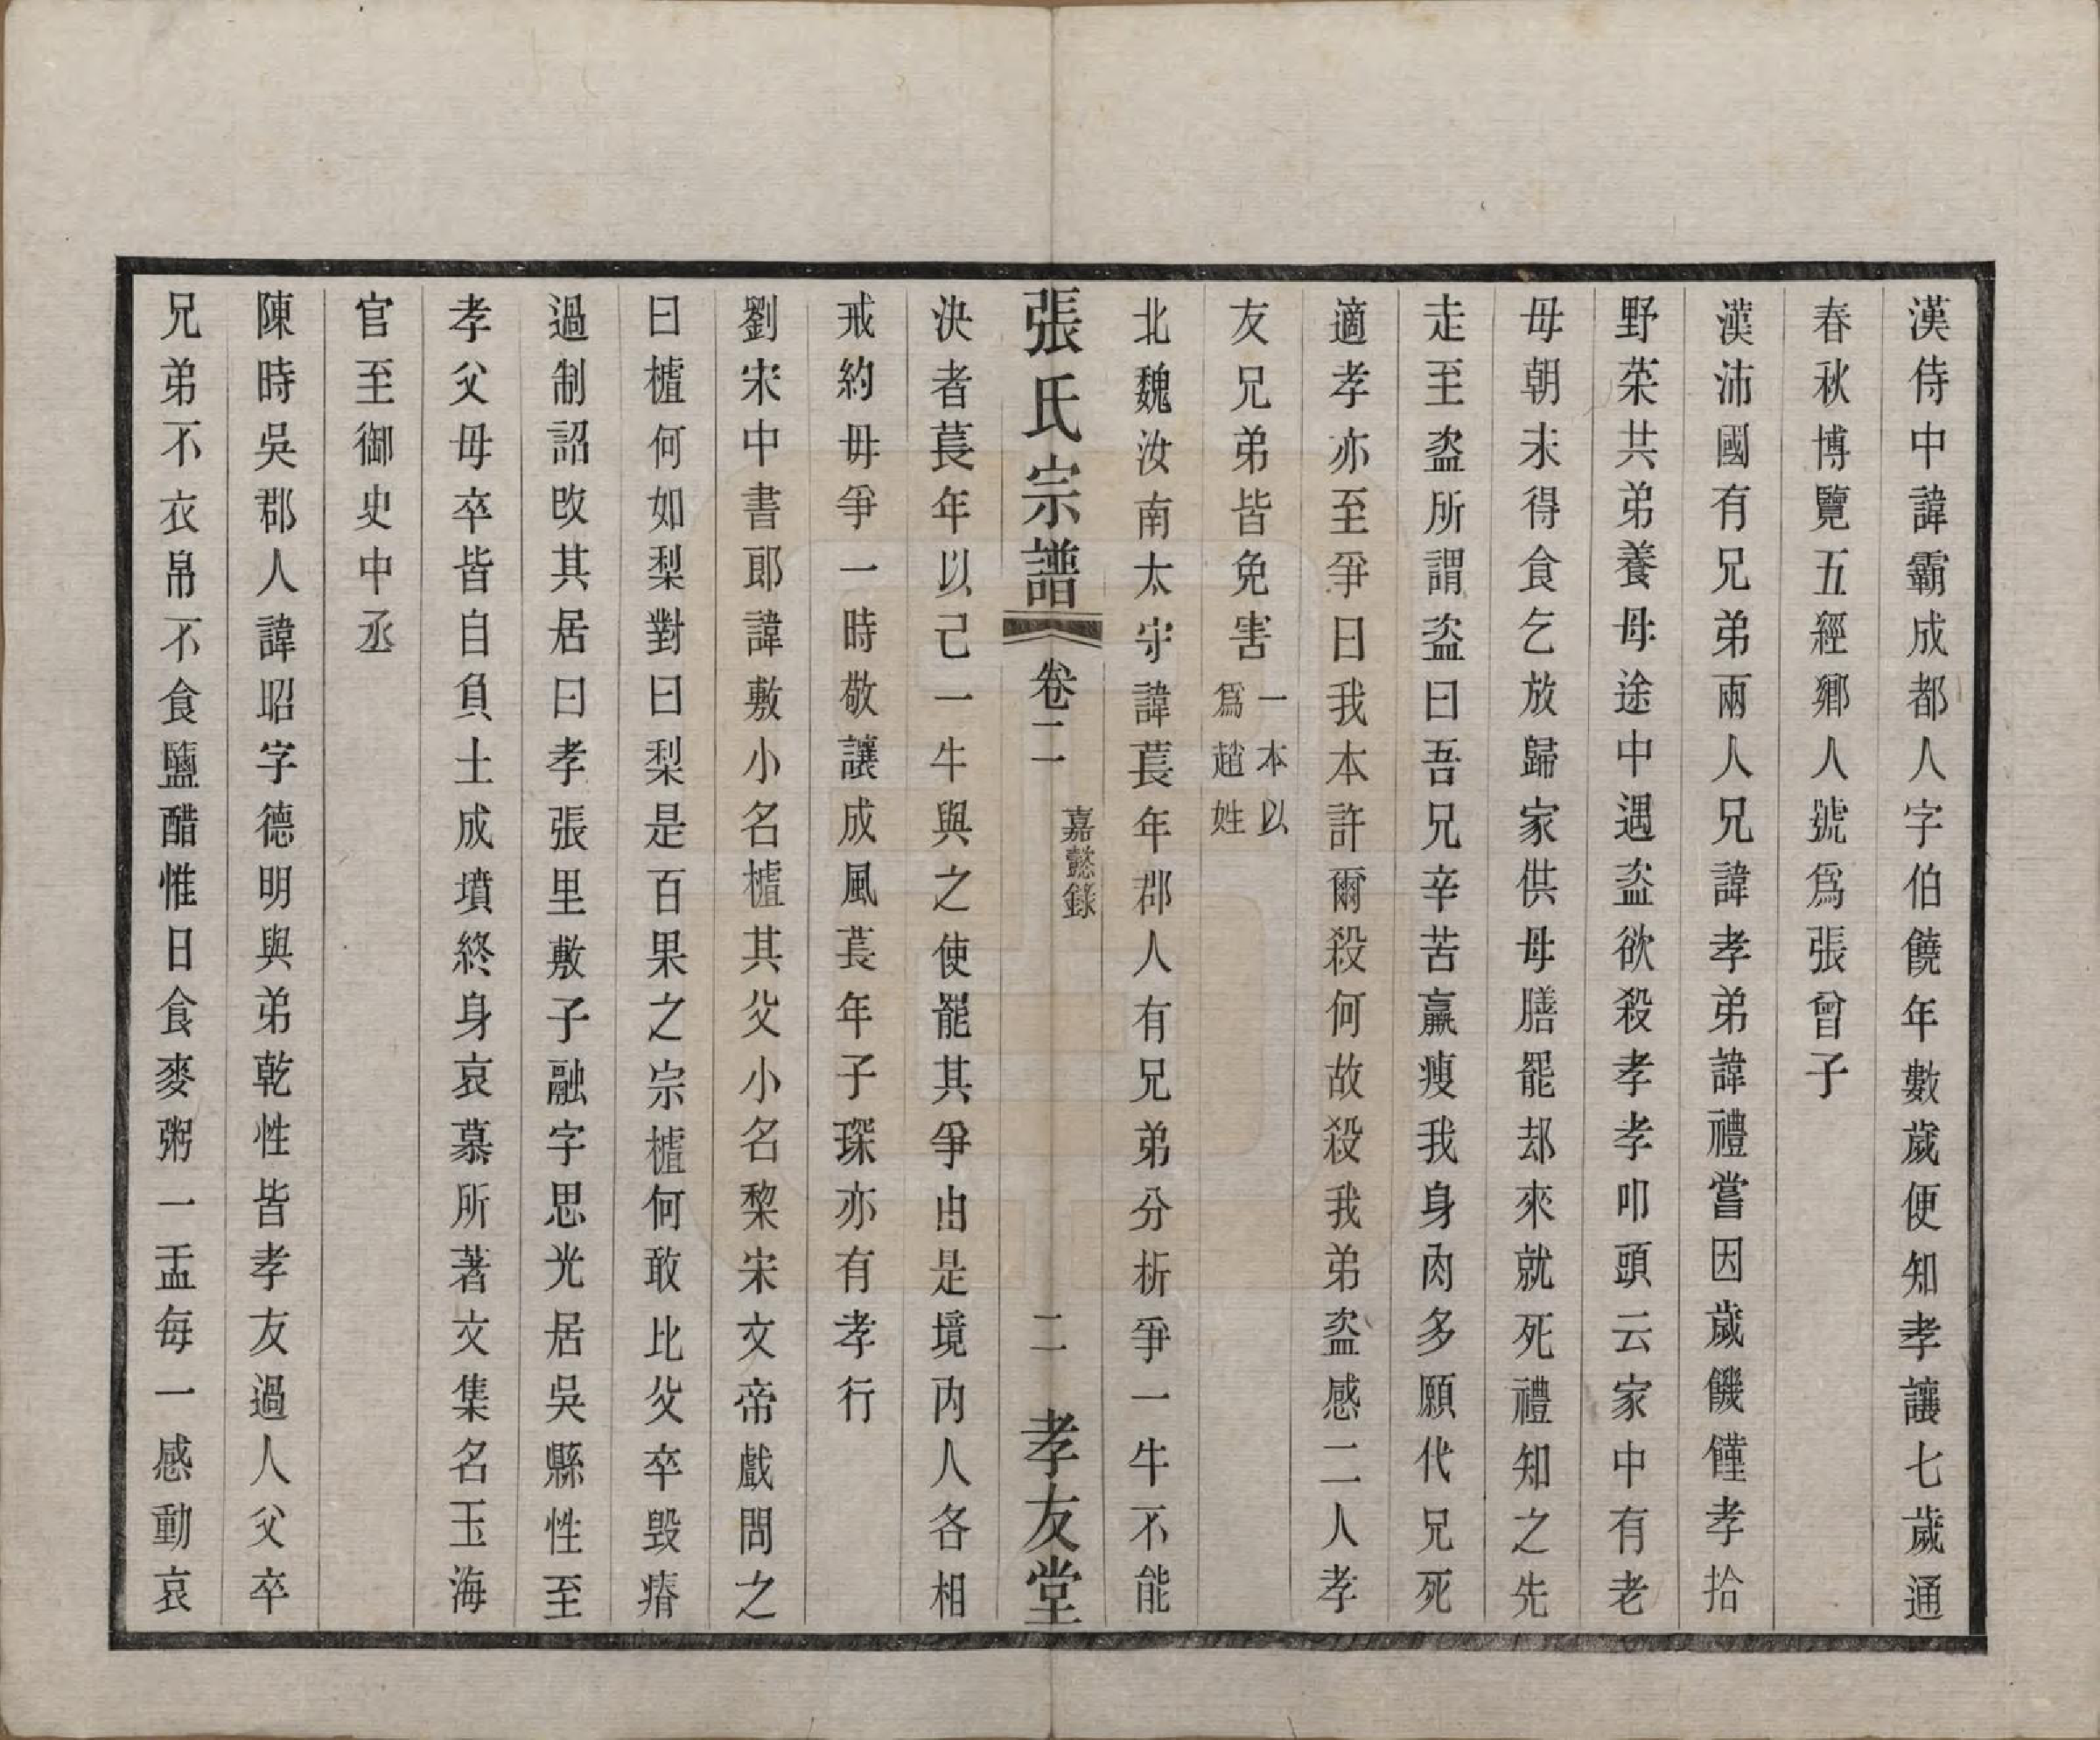 漢侍中諱霸成都人字伯饒年數歲便知孝讓七歲通
春秋博覽五經鄉人號爲張曾子
漢沛國有兄弟兩人兄諱孝弟諱禮嘗因歲饑饉孝拾
野菜共弟養母途中遇盜欲殺孝孝叩頭云家中有老
母朝未得食乞放歸家供母膳罷却來就死禮知之先
走至盜所謂盜曰吾兄辛苦羸瘦我身肉多願代兄死
適孝亦至爭曰我本許爾殺何故殺我弟盜感二人孝
友兄弟皆免害一本以爲趙姓
北魏汝南太守諱萇年郡人有兄弟分析爭一牛不能
張氏宗譜 卷二 嘉懿錄 二 孝友堂
決者萇年以己一牛與之使罷其爭由是境內人各相
戒約毋爭一時敬讓成風萇年子琛亦有孝行
劉宋中書郎諱敷小名樝其父小名棃宋文帝戲問之
曰樝何如梨對曰梨是百果之宗樝何敢比父卒毀瘠
過制詔改其居曰孝張里敷子融字思光居吳縣性至
孝父母卒皆自負土成墳終身哀慕所著文集名玉海
官至御史中丞
陳時吳郡人諱昭字德明與弟乾性皆孝友過人父卒
兄弟不衣帛不食鹽醋惟日食麥粥一盂每一感動哀